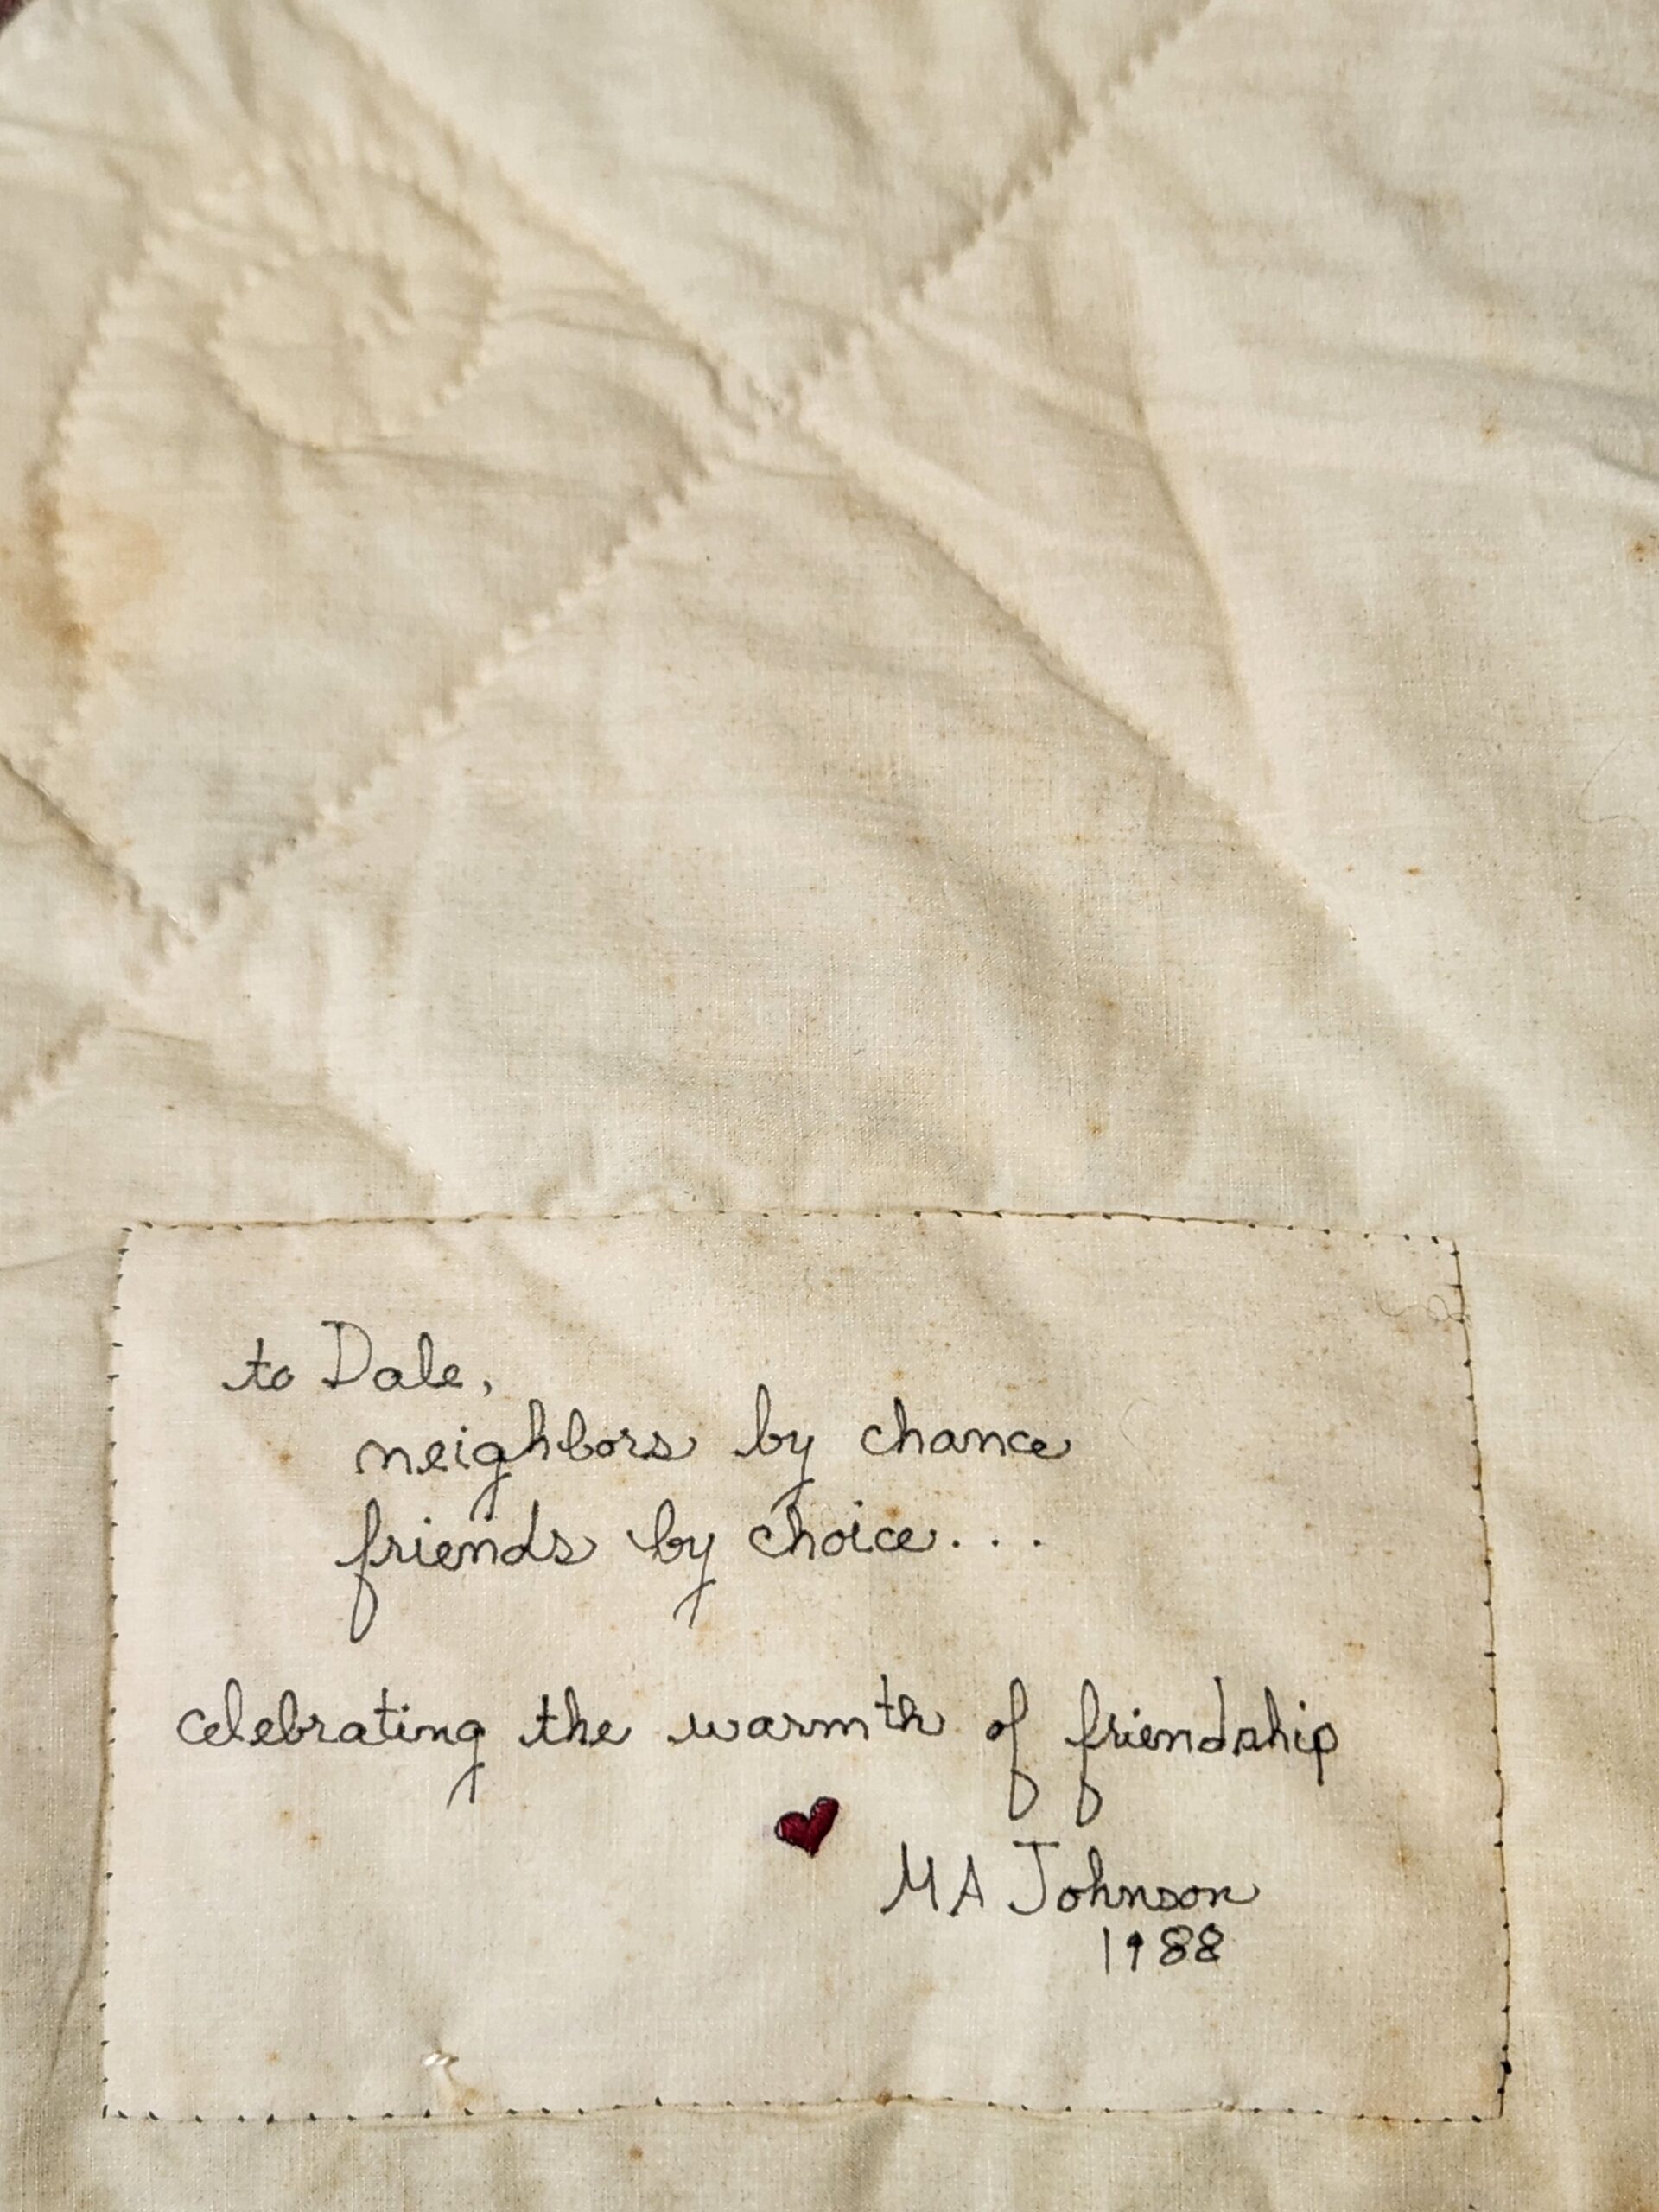 to Dale,
neighbors by chance
friends by choice...
celebrating the warmth of friendship
MA Johnson
1988